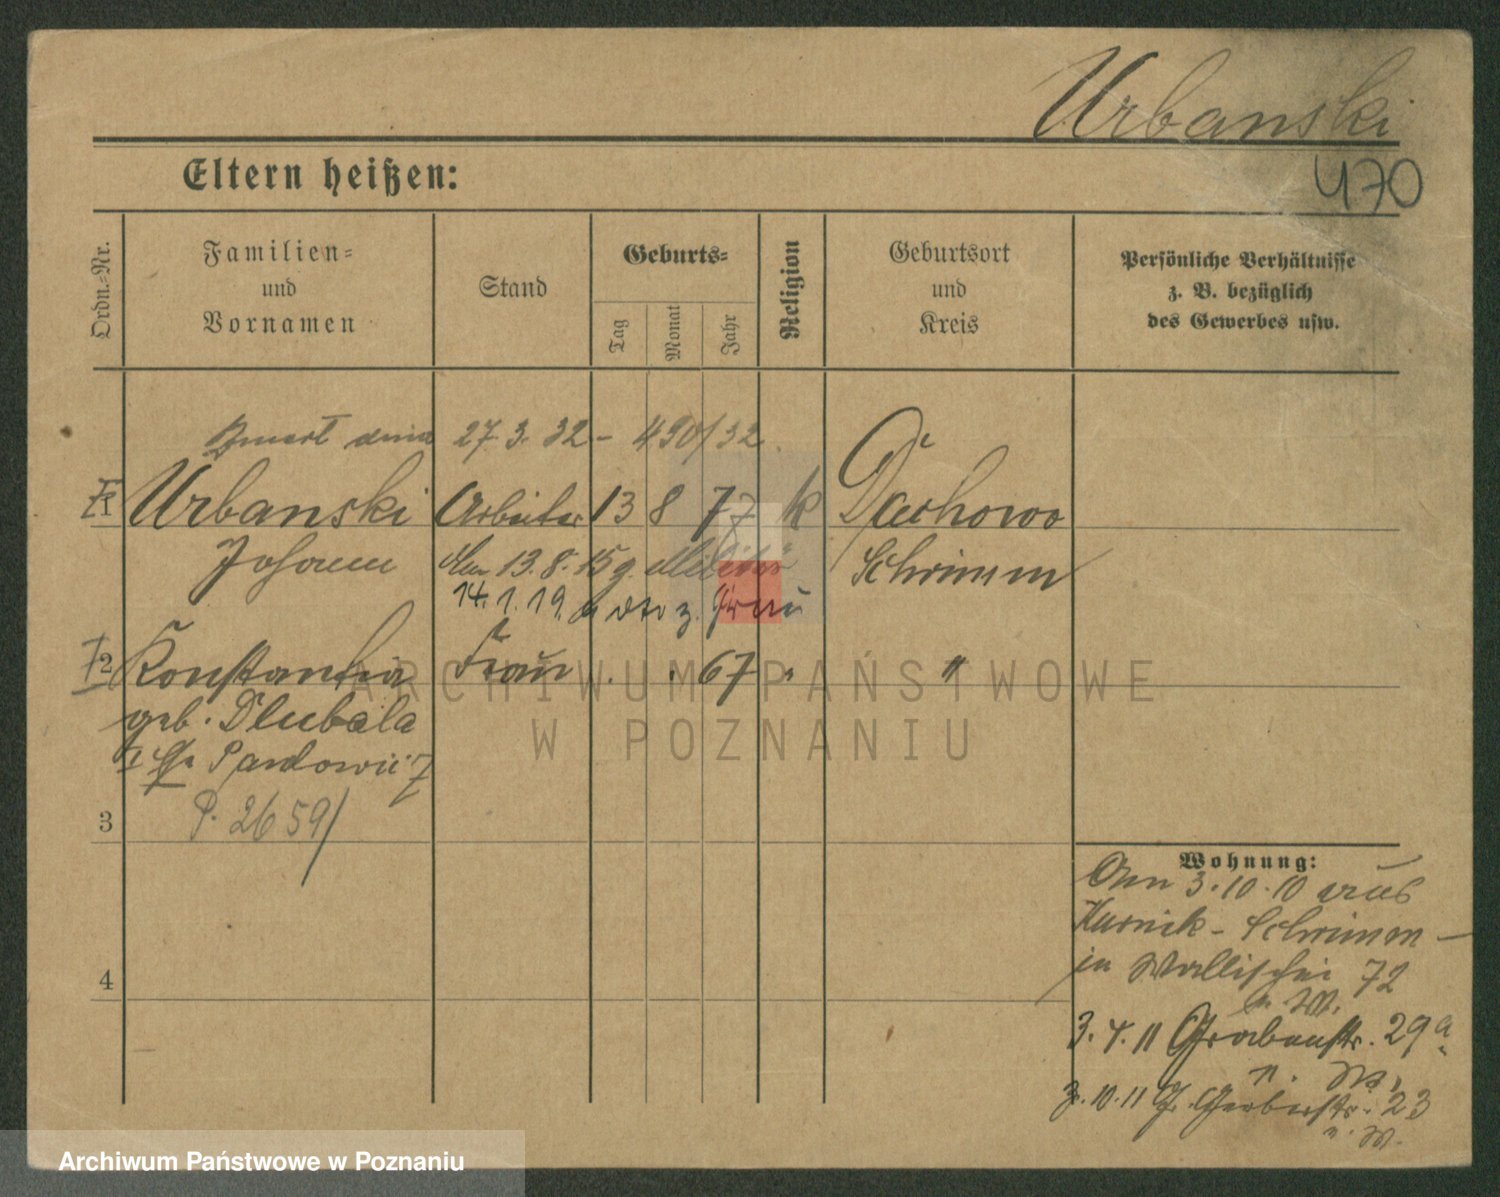 Urbanski
470
Eltern heißen:
Ordn.-Nr.
Familien-
und
Vornamen
Stand
Geburts-
Tag
Monat
Jahr
Religion
Geburtsort
und
Kreis
Persönliche Verhältnisse
z. B. bezüglich
des Gewerbes usw.
Zmarł dnia 27.3.32 - 490/32
1 Urbanski Arbeiter 13 8 77 k Dachowo
Johann Am 13.8.15 g. Militär Schrimm
14.1.19. z. Frau
2 Konstantia Frau . . 67 " "
geb. Dlubala
P. 2659/
3
4
Wohnung:
Am 3.10.10 aus
Kurnik - Schrimm -
in Wallischei 72
n. W.
3.4.11 Grabenstr. 29a
n. W.
3.10.11 G. Gerberstr. 23
n. W.
ARCHIWUM PAŃSTWOWE
W POZNANIU
Archiwum Państwowe w Poznaniu